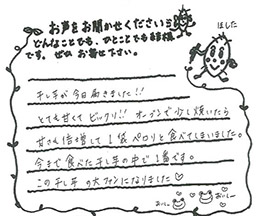 お声をお聞かせください
どんなことでも、ひとことでも結構
です。ぜひ お寄せ下さい。
ほしこ
干し芋が今日届きました!!
とても甘くて ビックリ!! オーブンで少し焼いたら
甘さ倍増して 1袋 ペロリと食べてしまいました。
今まで食べた干し芋の中で 1番です。
この干し芋の大ファンになりました♡
おいしー
おいしー